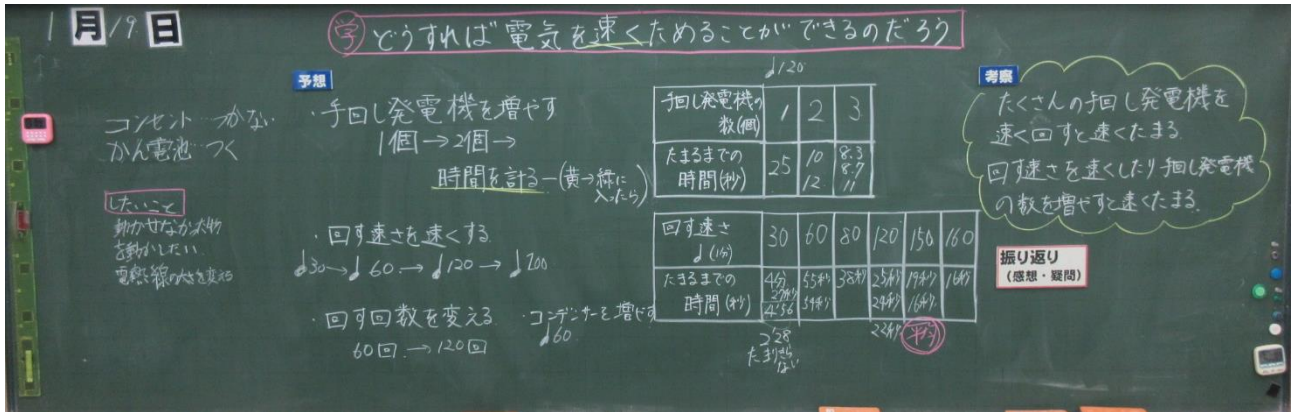 1月19日
学 どうすれば電気を速くためることができるのだろう
コンセント…つかない
かん電池…つく
したいこと
動かせなかった物
を動かしたい
予想
・手回し発電機を増やす
1個→2個→
時間を計る―(黄→緑に
入ったら)
・回す速さを速くする
♩30→♩60→♩120→♩200
・回す回数を変える
60回→120回
・コンデンサーを増やす
♩60
♩120
手回し発電機の
数(個) 1 2 3
たまるまでの
時間(秒) 25 10 12 8.3 8.7 11
回す速さ
♩(1分) 30 60 80 120 150 160
たまるまでの
時間(秒)
4分 27秒 55秒 38秒 25秒 19秒 16秒
4'56 54秒 24秒 16秒
2'28 22秒
考察
たくさんの手回し発電機を
速く回すと速くたまる。
回す速さを速くしたり手回し発電機
の数を増やすと速くたまる。
振り返り
(感想・疑問)